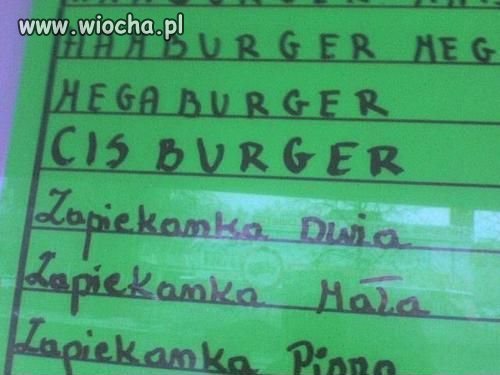 www.wiocha.pl
HAMBURGER
HAMBURGER MEG
MEGABURGER
CIS BURGER
Zapiekanka Duża
Zapiekanka Mała
Zapiekanka